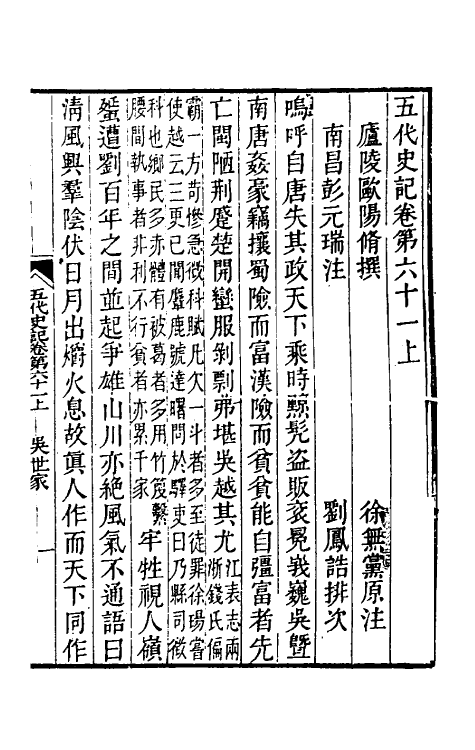 五代史記卷第六十一上
廬陵歐陽脩撰　徐無黨原注
南昌彭元瑞注　劉鳳誥排次
嗚呼自唐失其政天下乘時黥髡盜販袞冕峩巍吳曁
南唐姦豪竊攘蜀險而富漢險而貧貧能自彊富者先
亡閩陋荆蹙楚開蠻服剝剽弗堪吳越其尤江表志兩浙錢氏偏
霸一方苛慘急徵科賦凡欠一斗者多至徒罪徐瑒嘗
使越云三更已聞麞鹿號達曙問於驛吏曰乃縣司徵
科也鄉民多赤體有被葛者多用竹篾繫
腰間執事者非利不行貧者亦累千家牢牲視人嶺
蜑遭劉百年之間並起爭雄山川亦絶風氣不通語曰
淸風興羣陰伏日月出爝火息故眞人作而天下同作
五代史記卷第六十一上　吳世家　一